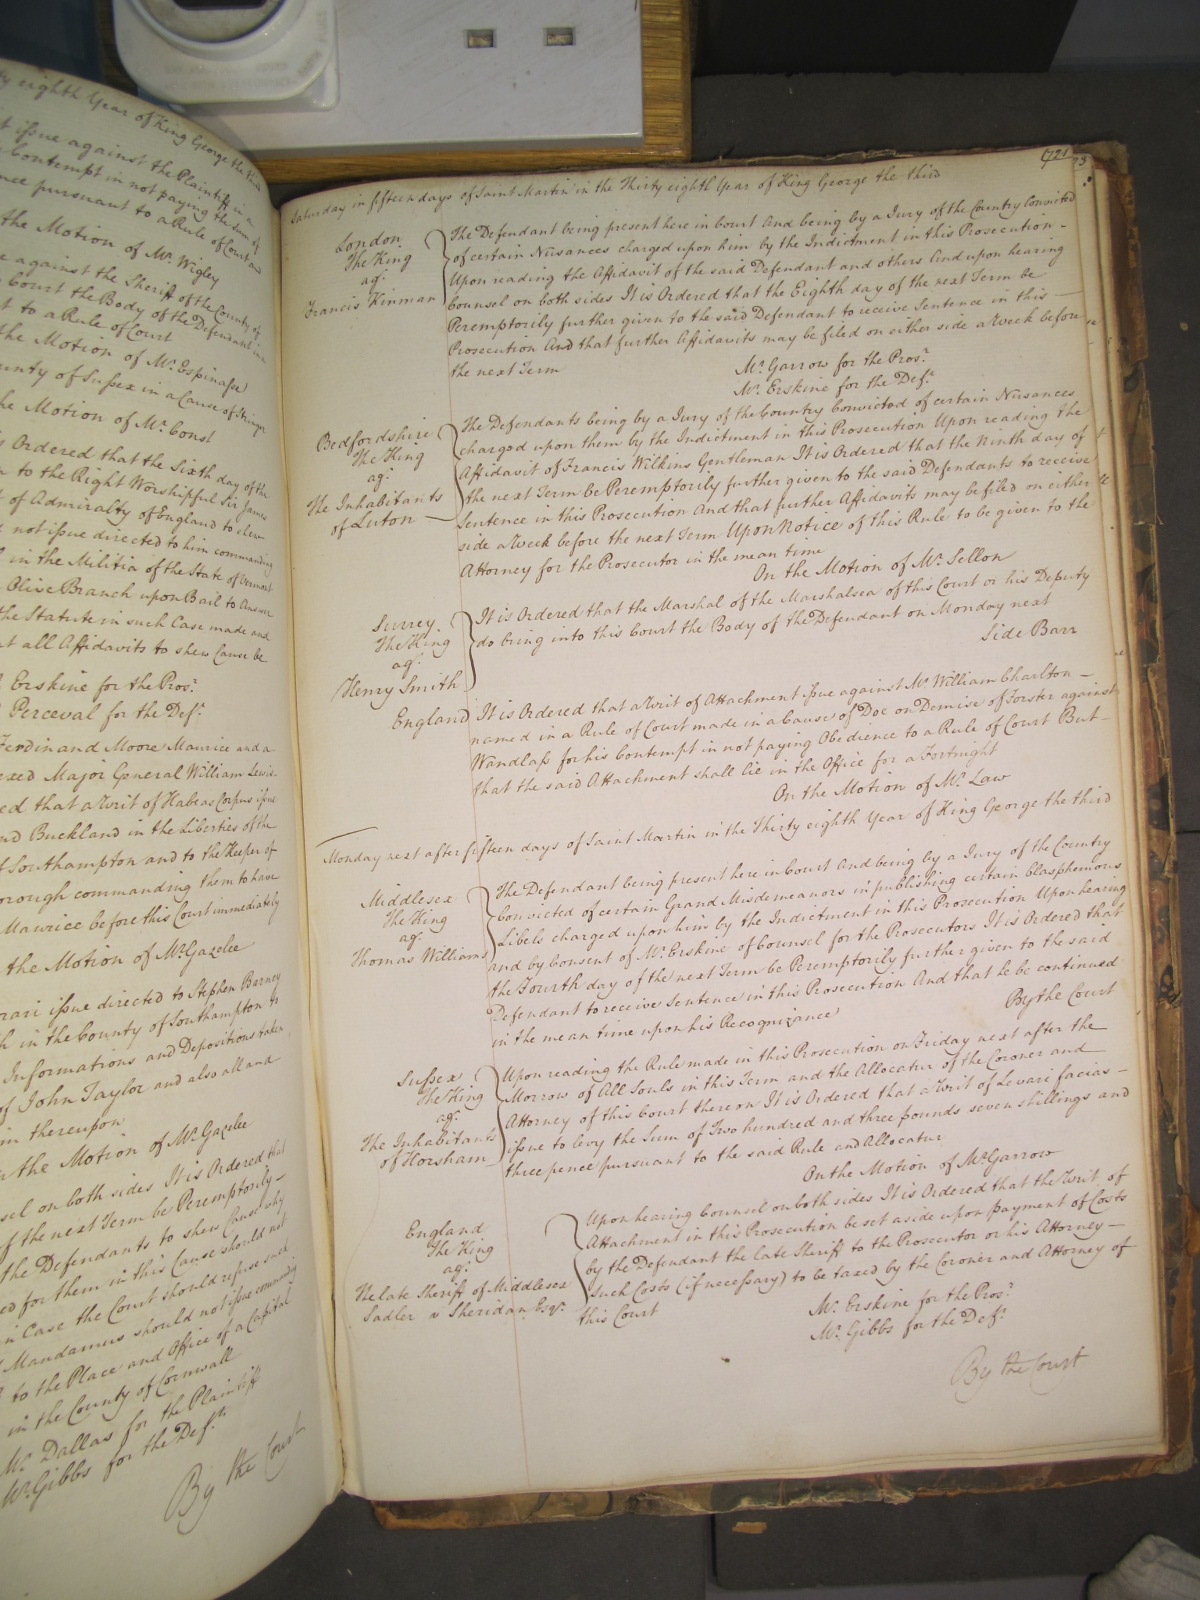 ty eighth Year of King George the third
t issue against the Plaintiff in a
Contempt in not paying the Sum of
nce pursuant to a Rule of Court and
the Motion of Mr. Wigley
e against the Sheriff of the County of
Court the Body of the Defendant in a
t to a Rule of Court
the Motion of Mr. Espinasse
unty of Sussex in a Cause of
he Motion of Mr. Const
s Ordered that the Sixth day of the
n to the Right Worshipful Sir James
t of Admiralty of England to shew
not issue directed to him commanding
in the Militia of the State of Vermont
Olive Branch upon Bail to Answer
the Statute in such Case made and
at all Affidavits to shew Cause be
Erskine for the Pros.r
Perceval for the Def.t
Ferdinand Moore Maurice and a
exed Major General William Lewis
ed that a Writ of Habeas Corpus issue
nd Buckland in the Liberties of the
Southampton and to the Keeper of
orough commanding them to have
Maurice before this Court immediately
the Motion of Mr. Gazelee
rari issue directed to Stephen Barney
h in the County of Southampton to
Informations and Depositions taken
of John Taylor and also all and
in thereupon
n the Motion of Mr. Gazelee
sel on both sides It is Ordered that
of the next Term be Peremptorily
the Defendants to shew Cause why
ed for them in this Cause should not
in Case the Court should refuse such
Mandamus should not issue
to the Place and Office of a Capital
in the County of Cornwall
Mr. Dallas for the Plaintiff
Mr. Gibbs for the Def.t
By the Court
(721
Saturday in fifteen days of Saint Martin in the Thirty eighth Year of King George the third
London
The King
ag.t
Francis Kinman
The Defendant being present here in Court And being by a Jury of the Country Convicted
of certain Nusances charged upon him by the Indictment in this Prosecution -
Upon reading the Affidavit of the said Defendant and others And upon hearing
Counsel on both sides It is Ordered that the Eighth day of the next Term be
Peremptorily further given to the said Defendant to receive Sentence in this —
Prosecution And that further Affidavits may be filed on either side a Week before
the next Term
Mr. Garrow for the Pros.r
Mr. Erskine for the Def.t
Bedfordshire
The King
ag.t
The Inhabitants
of Luton —
The Defendants being by a Jury of the Country Convicted of certain Nusances
charged upon them by the Indictment in this Prosecution Upon reading the
Affidavit of Francis Wilkins Gentleman It is Ordered that the Ninth day of
the next Term be Peremptorily further given to the said Defendants to receive
Sentence in this Prosecution And that further Affidavits may be filed on either
side a Week before the next Term Upon Notice of this Rule to be given to the
Attorney for the Prosecutor in the mean time
On the Motion of Mr. Sellon
Surrey
The King
ag.t
Henry Smith
It is Ordered that the Marshal of the Marshalsea of this Court or his Deputy
do bring into this Court the Body of the Defendant on Monday next
Side Barr
England
It is Ordered that a Writ of Attachment issue against Mr. William Charlton —
named in a Rule of Court made in a Cause of Doe on Demise of Forster against
Wandlass for his Contempt in not paying Obedience to a Rule of Court But —
that the said Attachment shall lie in the Office for a Fortnight
On the Motion of Mr. Law
Monday next after fifteen days of Saint Martin in the Thirty eighth Year of King George the third
Middlesex
The King
ag.t
Thomas Williams
The Defendant being present here in Court And being by a Jury of the Country
Convicted of certain Grand Misdemeanors in publishing certain blasphemious
Libels charged upon him by the Indictment in this Prosecution Upon hearing
and by Consent of Mr. Erskine of Counsel for the Prosecutors It is Ordered that
the Fourth day of the next Term be Peremptorily further given to the said
Defendant to receive Sentence in this Prosecution And that he be continued
in the mean time upon his Recognizance
By the Court
Sussex
The King
ag.t
The Inhabitants
of Horsham —
Upon reading the Rule made in this Prosecution on Friday next after the
Morrow of All Souls in this Term and the Allocatur of the Coroner and
Attorney of this Court thereon It is Ordered that a Writ of Levari facias —
issue to levy the Sum of Two hundred and three pounds seven shillings and
three pence pursuant to the said Rule and Allocatur
On the Motion of Mr. Garrow
England
The King
ag.t
The late Sheriff of Middlesex
Sadler v Sheridan Esq.r
Upon hearing Counsel on both sides It is Ordered that the Writ of
Attachment in this Prosecution be set aside upon payment of Costs
by the Defendant the late Sheriff to the Prosecutor or his Attorney —
such Costs (if necessary) to be taxed by the Coroner and Attorney of
this Court
Mr. Erskine for the Pros.r
Mr. Gibbs for the Def.t
By the Court